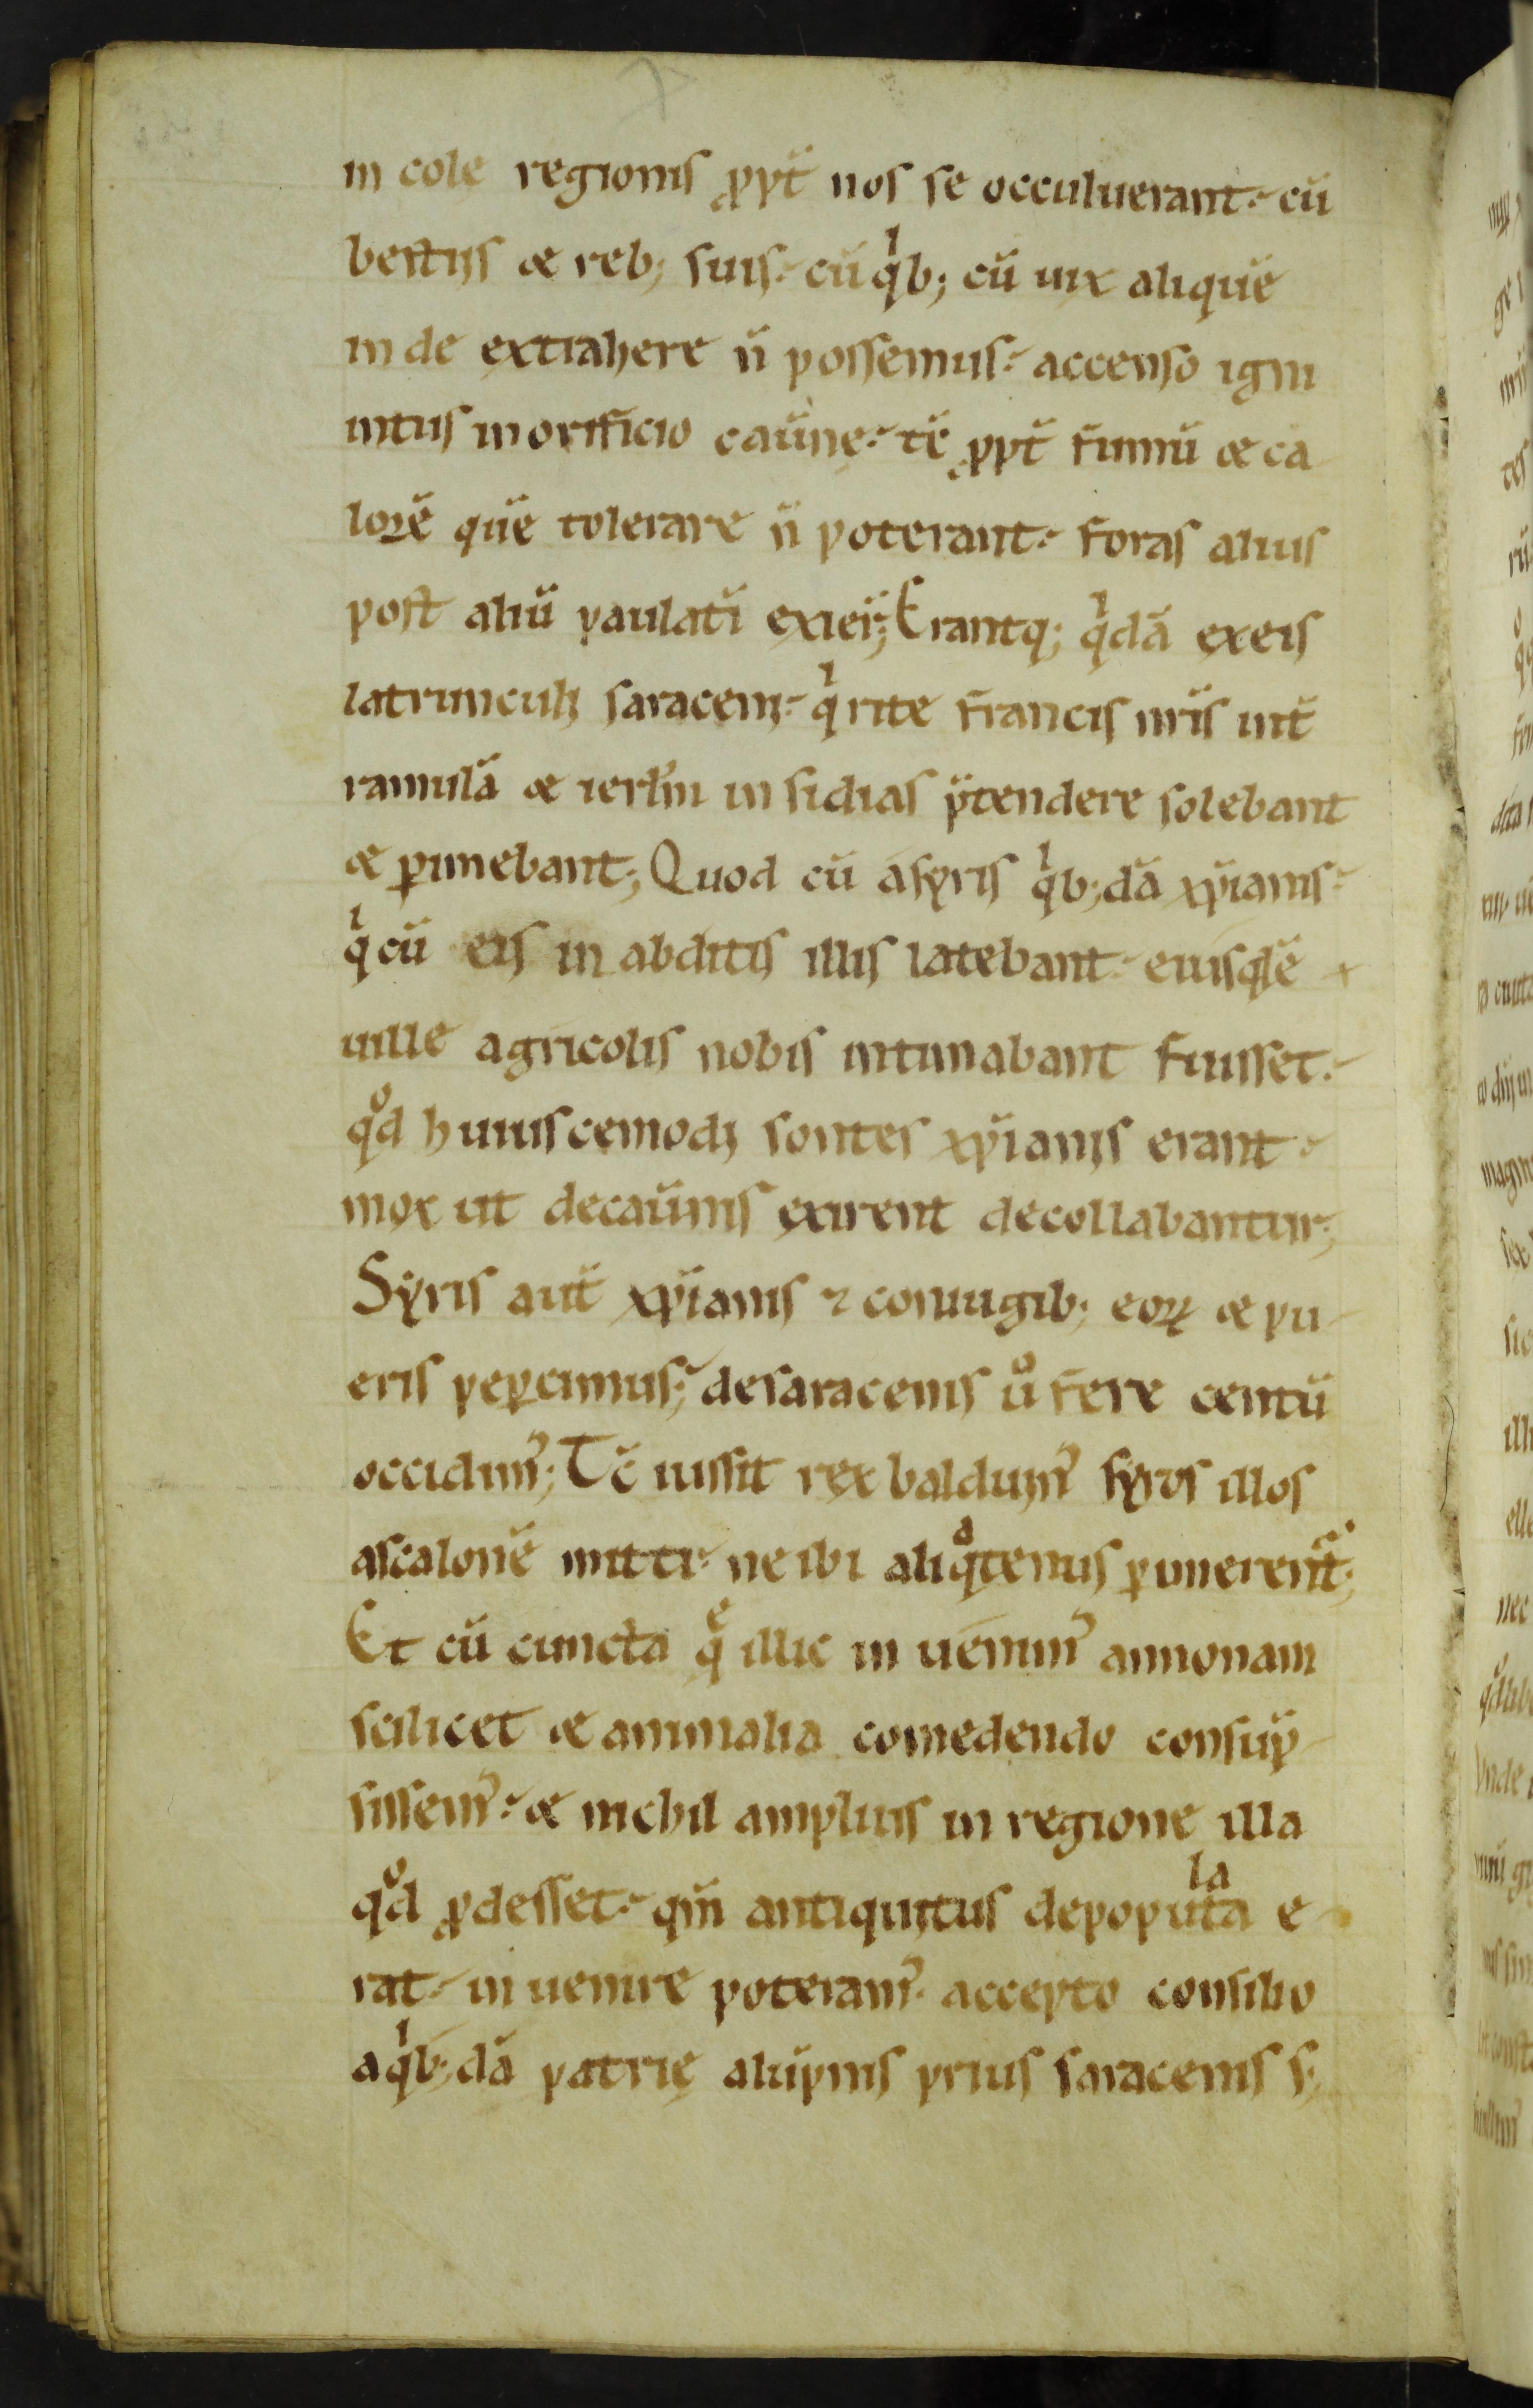 incole regionis ꝓpt̄ nos se occuluerant. cū
bestiis & reb; suis. cū qͥb; cū uix aliquē
inde extrahere n̄ possemus. accenso igni
intus inorificio cau̅nę. tc̄ ꝓpt̄ fumū & ca
lorē quē tolerare n̄ poterant. foras alius
post aliū paulatī exier̄; Erantq; qͥdā exeis
latrunculi saraceni. qͥ rite francis nr̄is int̄
ramulā & ierl̄m insidias p̄tendere solebant
& ꝑimebant; Quod cū asyris qͥb;dā xp̄ianis.
qͥ cū eis in abditis illis latebant. eiusdē
uille agricolis nobis intimabant fuisset.
qͦd huiuscemodi sontes xp̄ianis erant.
mox ut decau̅nis exirent decollabantur;
Syris aut̄ xp̄ianis ⁊ coniugib; eoꝝ & pu
eris peꝑcimus; desaracenis uͦ fere centū
occidim᾿; Tc̄ iussit rex balduin᾿ syros illos
ascalonē mitti. ne ibi aliqͣtenus ꝑimerent᷑;
Et cū cuncta qͤ illic inuenim᾿ annonam
scilicet & animalia comedendo consūp
sissem᾿. & nichil amplius in regione illa
qͦd ꝓdesset. qm̄ antiquitus depopulata e
rat. inuenire poteram᾿. accepto consilio
aqͥb;dā patrię alūpnis prius saracenis s;